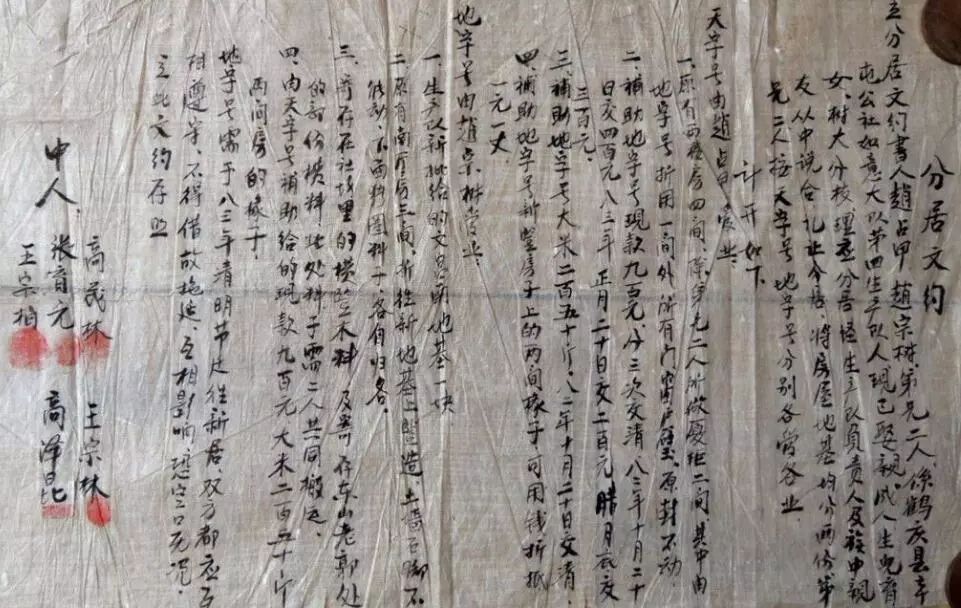 分居文约
立分居文约书人赵占甲 赵宗树弟兄二人,係鹤庆县辛
屯公社如意大队第四生产队人现已娶親,成人生児育
女,树大分枝,理应分居 生产队負責人及族中親
友从中说合 礼让分居,将房屋地基均分两份弟
兄二人按天字号 地字号分别各管各业
计开如下
天字号由赵占甲管业,
一、原有西楼房四间,除弟兄二人所做 二间其中由
地字号折用一间外,所有门窗户壁,原封不动
二、補助地字号现款九百元,分三次交清,八二年十月二十
日交四百元八三年正月二十日交二百元腊月底交
三百元。
三、補助地字号大米二百五十斤,八二年十月二十日交清,
四、補助地字号新竖房子上的两间椽子可用钱折抵
一元一丈
地字号由赵宗树管业。
一、生产队新批给的文昌 地基一块
二、原有南厅房三间,折往新地基上竖造,土墙石脚不
能动,东西料圈料子,各自归各。
三、寄存在社场里的横竖木料及寄存东山老郭处
的部份横料此处料子需二人共同搬运
四、由天字号補助给的现款九百元大米二百五十斤
两间房的椽子,
地字号需于八三年清明节赴往新居,双方都应了
村遵守,不得借故拖延,互相影响恐空口无凭
立此文约存照
中人, 高茂林 王宗林
张育元
王宗柏 高泽昆